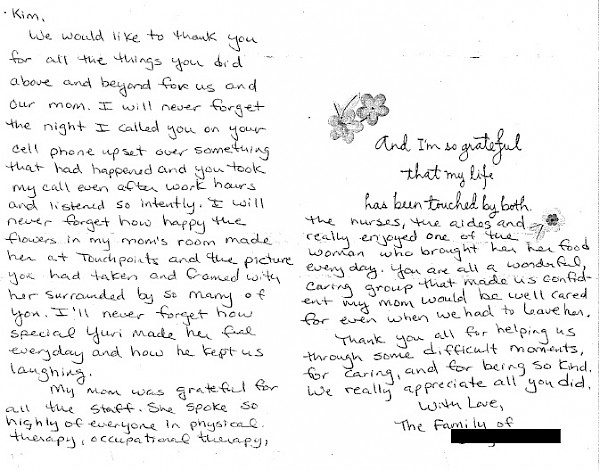 Kim,
We would like to thank you
for all the things you did
above and beyond for us and
our mom. I will never forget
the night I called you on your
cell phone upset over something
that had happened and you took
my call even after work hours
and listened so intently. I will
never forget how happy the
flowers in my mom's room made
her at Touchpoints and the picture
you had taken and framed with
her surranded by so many of
you. I'll never forget how
special Yuri made her feel
everyday and how he kept us
laughing.
My mom was grateful for
all the staff. She spoke so
highly of everyone in physical
therapy, occupational therapy,
And I'm so grateful
that my life
has been touched by both.
the nurses, the aides and
really enjoyed one of the
woman who brought her her food
everyday. You are all a wonderful,
caring group that made us confid-
ent my mom would be well cared
for even when we had to leave her.
Thank you all for helping us
through some difficult moments,
for caring, and for being so kind.
We really appreciate all you did.
With Love,
The Family of